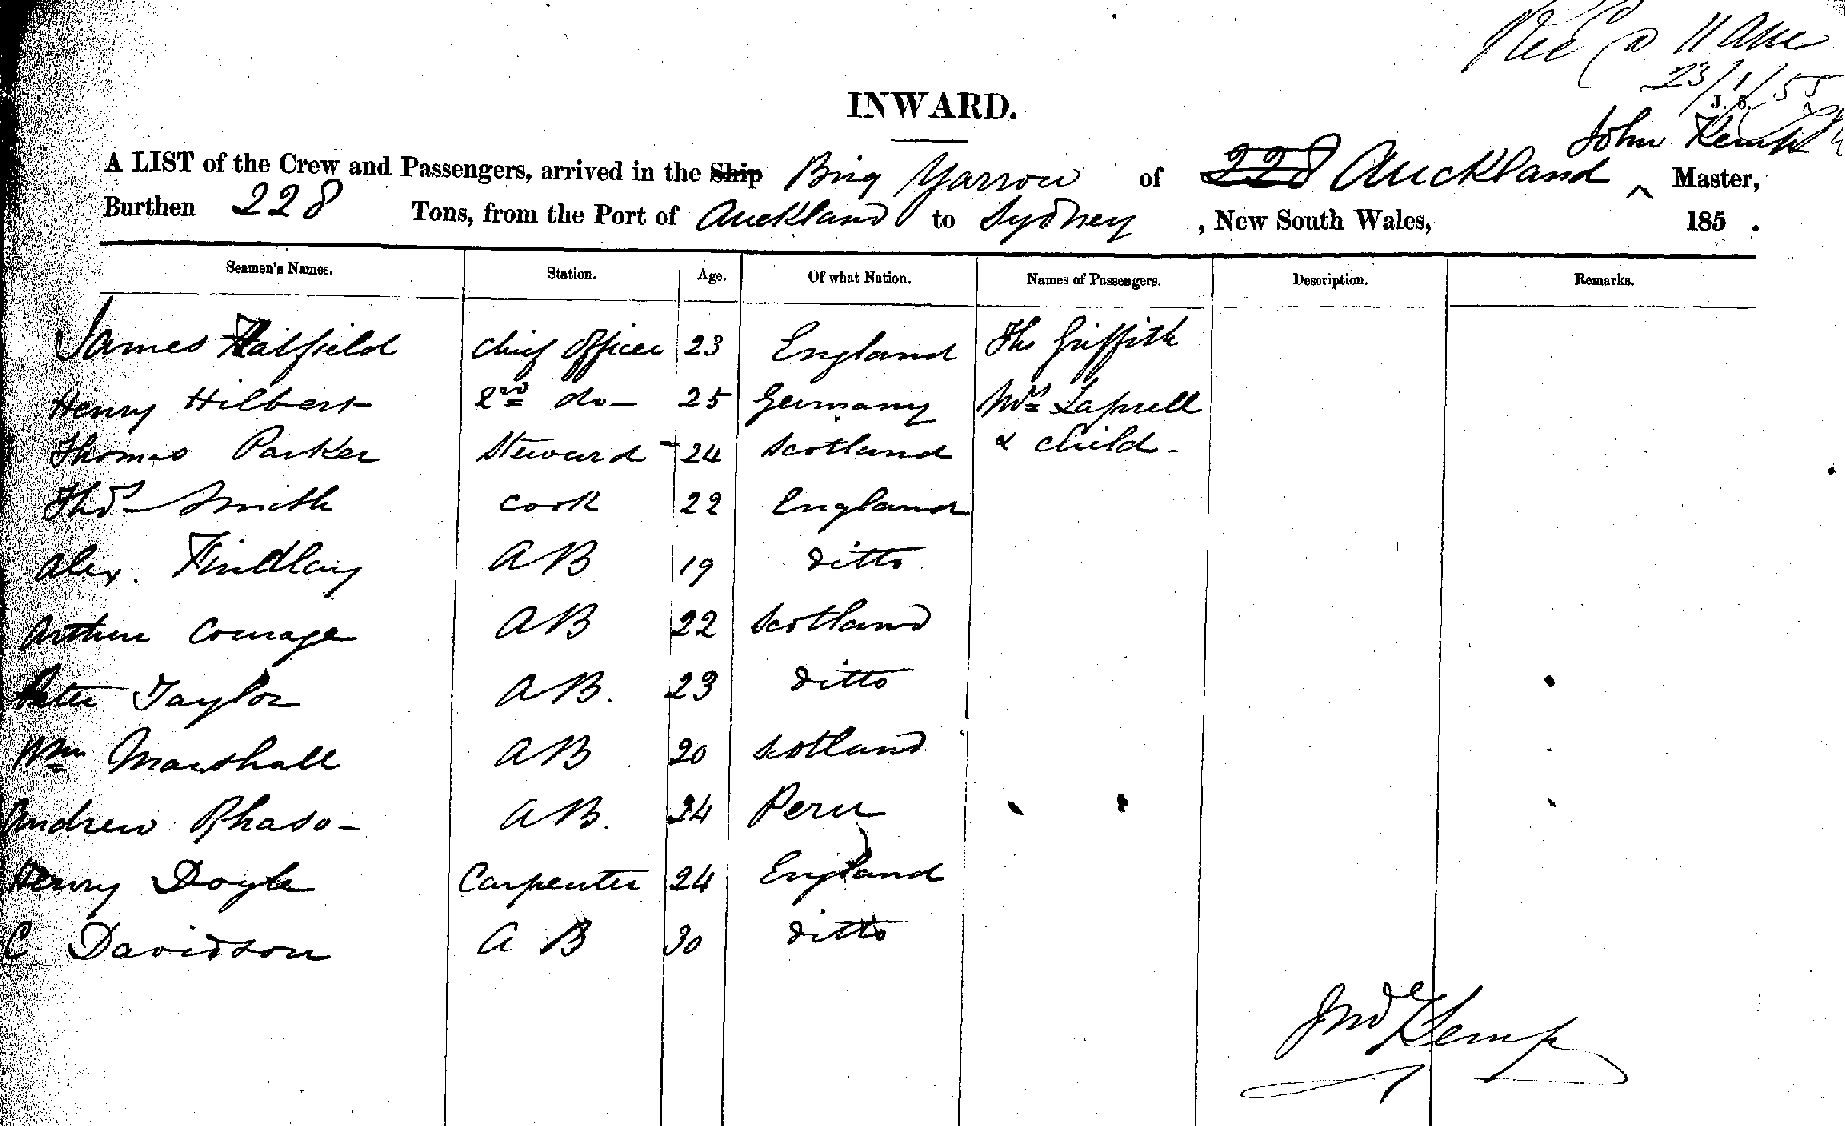 Rec @ 11 am
23/1/55
INWARD.
John Kemp
A LIST of the Crew and Passengers, arrived in the Ship Brig Yarrow of 228 Auckland ^ Master,
Burthen 228 Tons, from the Port of Auckland to Sydney , New South Wales, 185 .
Seamen's Names. Station. Age. Of what Nation. Names of Passengers. Description. Remarks.
James Hatfield chief officer 23 England Tho Griffith
Henry Hilbert 2nd do - 25 Germany Mrs
Thomas Parker Steward - 24 Scotland & child -
Thos Smith cook 22 England
Alex. Findlay AB 19 ditto
Arthur Courage AB 22 Scotland
Peter Taylor AB. 23 ditto
Wm Marshall AB 20 Scotland
Andrew AB. 24 Peru
Henry Doyle Carpenter 24 England
C Davidson AB 30 ditto
Jno Kemp